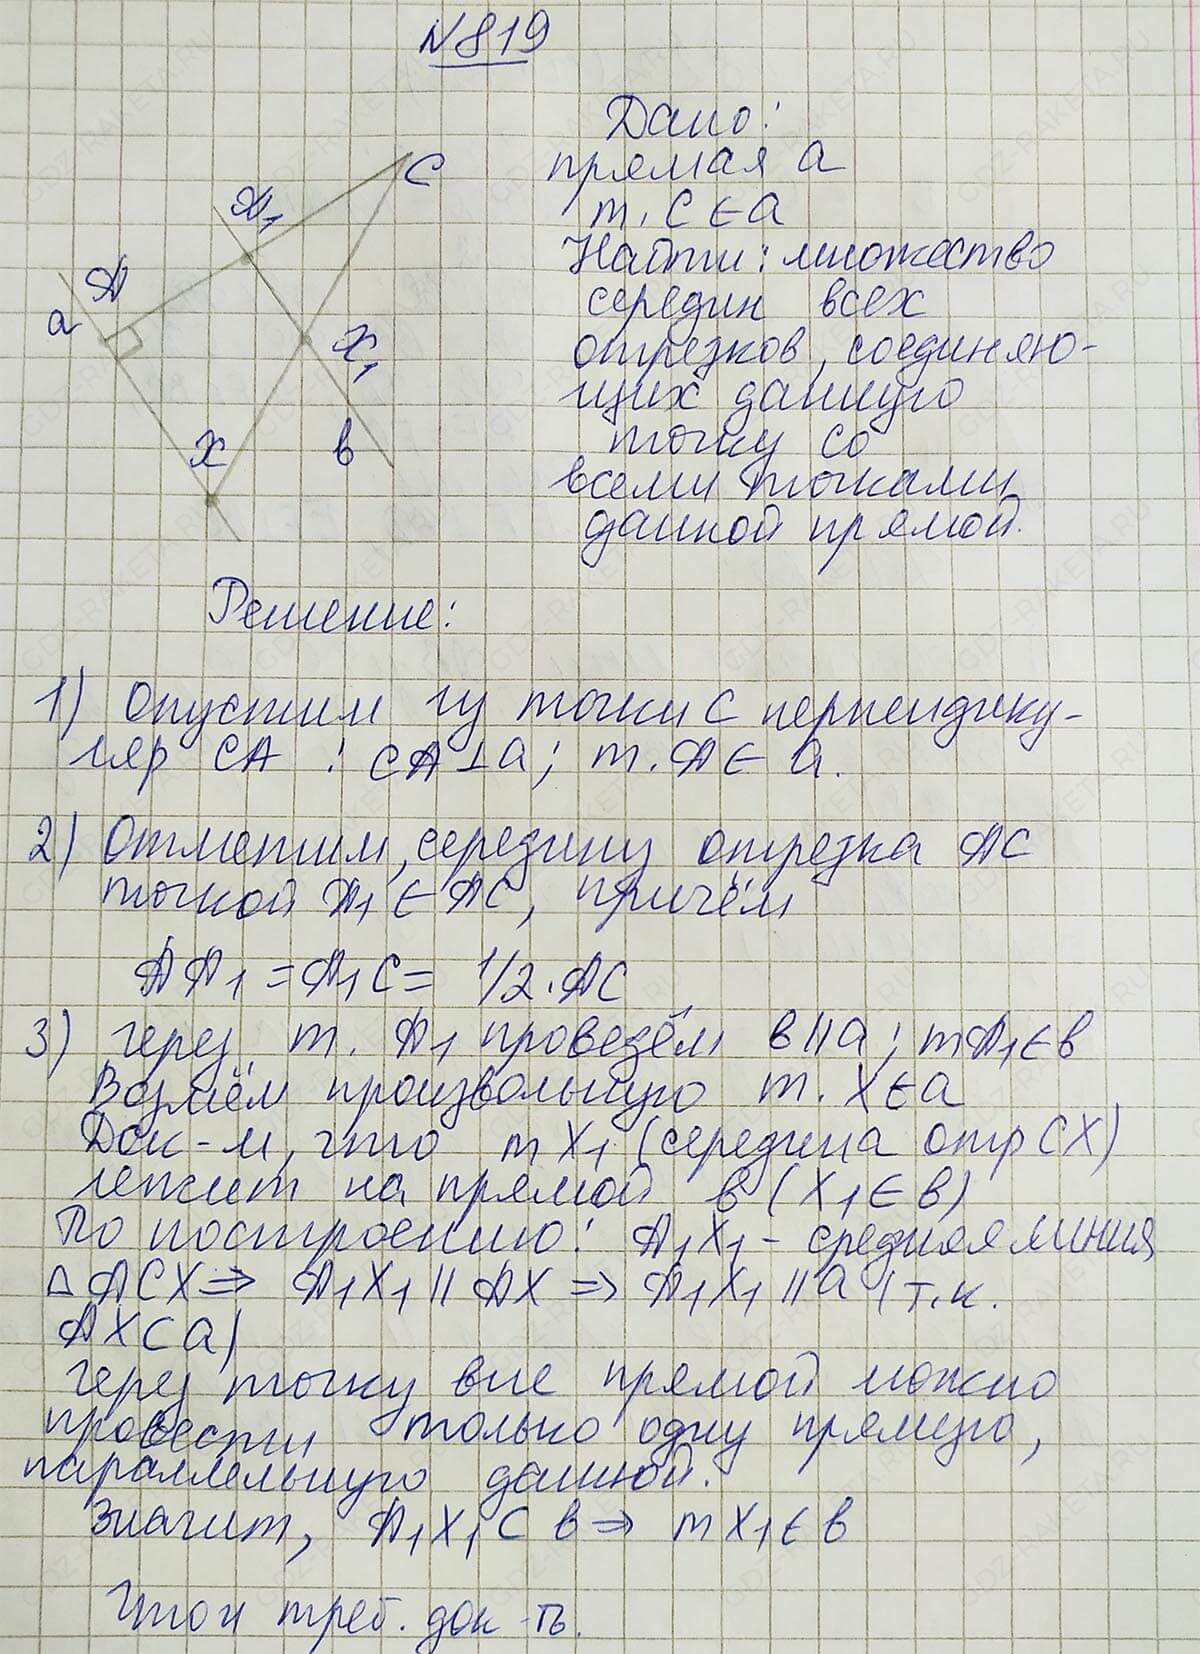 N819
Дано:
прямая a
т. C ∈ a
Найти: множество
середин всех
отрезков, соединяю-
щих данную
точку со
всеми точками
данной прямой.
C
A₁
A
a
X₁
X
b
Решение:
1) Опустим из точки C перпендику-
ляр CA : CA ⊥ a; т. A ∈ a.
2) Отметим середину отрезка AC
точкой A₁ ∈ AC, причём
AA₁ = A₁C = 1/2 · AC
3) через т. A₁ проведём b || a; т A₁ ∈ b
Возмём произвольную т. X ∈ a
Док-м, что т X₁ (середина отр CX)
лежит на прямой b (X₁ ∈ b)
По построению: A₁X₁ - средняя линия
△ ACX ⇒ A₁X₁ || AX ⇒ A₁X₁ || a (т.к.
AX ⊂ a)
через точку вне прямой можно
провести только одну прямую,
параллельную данной.
Значит, A₁X₁ ⊂ b ⇒ т X₁ ∈ b
Что и треб. док-ть.